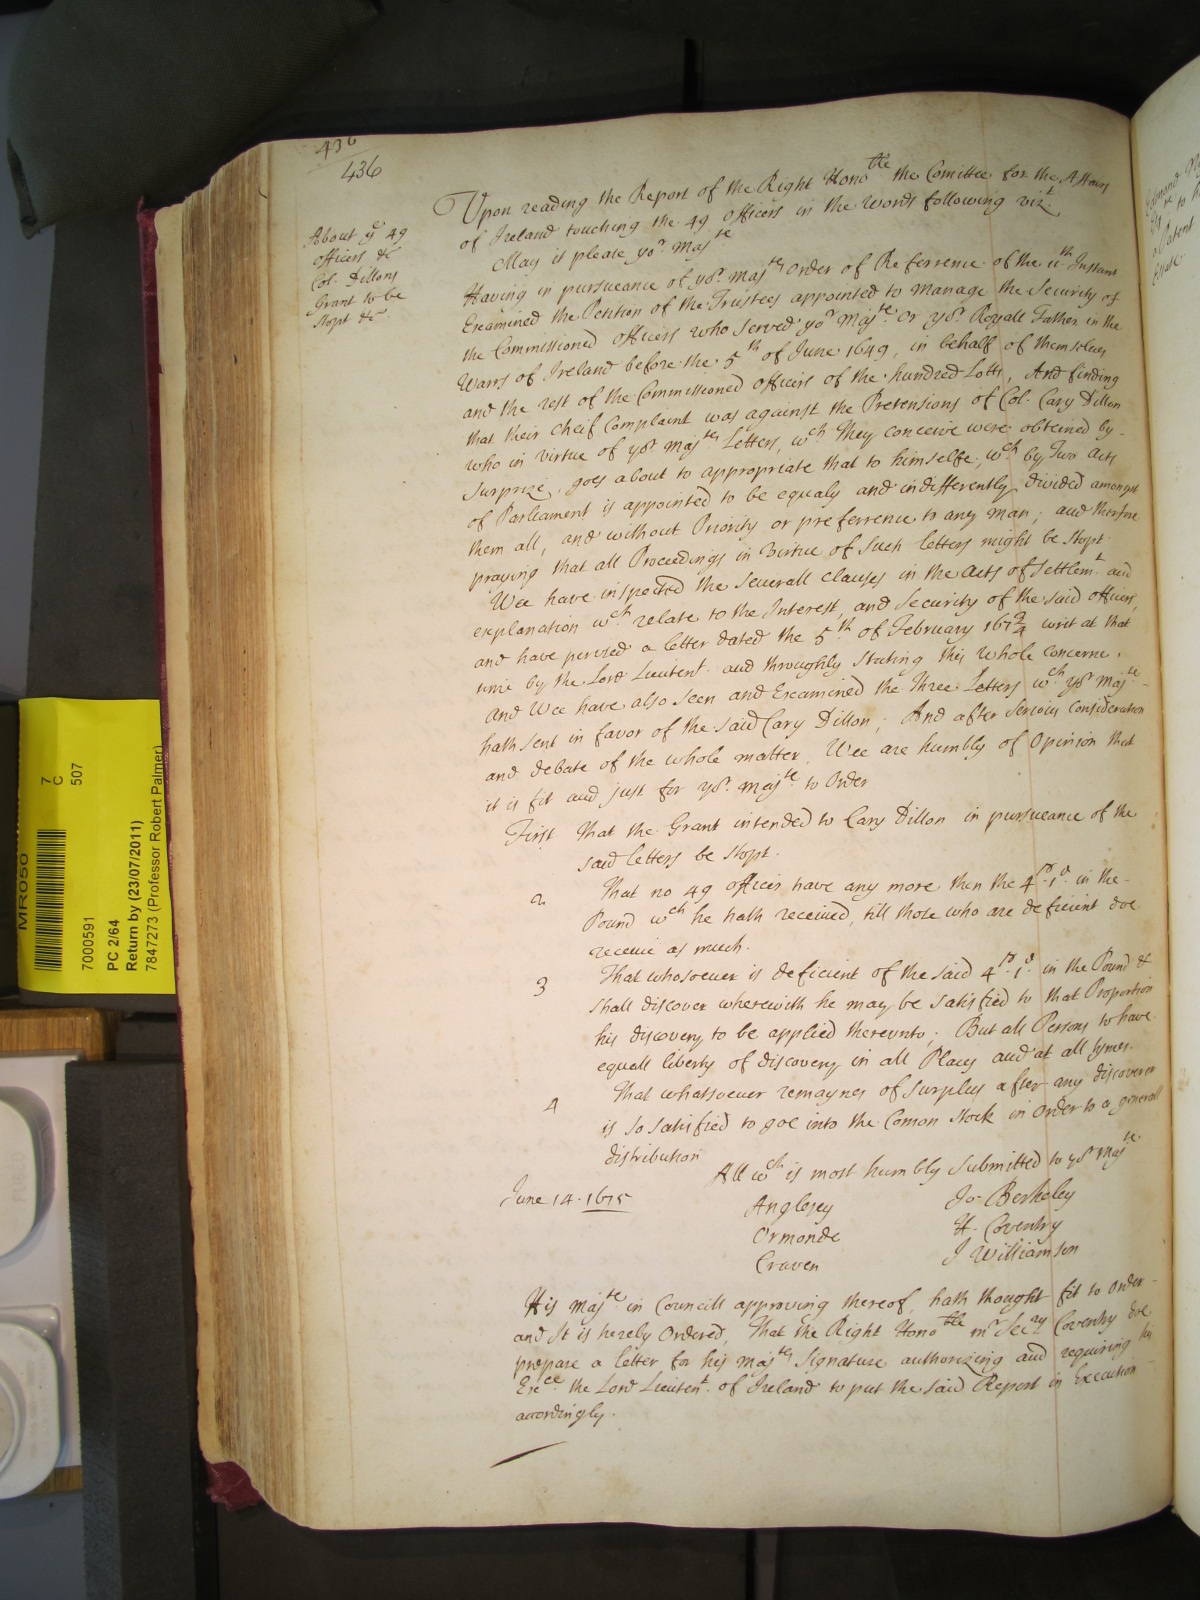 436
436
About ye 49
officers &c
Col. Dillons
Grant to be
stopt &c
Upon reading the Report of the Right Honoble the Comittee for the Affairs
of Ireland touching the 49 officers in the words following vizt
May it please yor Majtie
Having in pursueance of yor Majties Order of Referrence of the 11th Instant
Examined the Petition of the Trustees appointed to manage the Security of
the Commissioned officers who served yor Majtie or yor Royall Father in the
Warrs of Ireland before the 5th of June 1649, in behalf of themselves
and the rest of the Commissioned officers of the hundred Lotts, And finding
that their cheif Complaint was against the Pretensions of Col. Cary Dillon
who in virtue of yor Majties Letters, wch They conceive were obtained by
surprize, goes about to appropriate that to himselfe, wch by Two Acts
of Parliament is appointed to be equaly and indifferently divided amongst
them all, and without Priority or preferrence to any man; and therefore
praying that all Proceedings in Virtue of such letters might be stopt.
Wee have inspected the severall clauses in the Acts of Settlemt and
explanation wch relate to the Interest, and Security of the said officers,
and have perused a letter dated the 5th of February 167¾ writ at that
time by the Lord Lieutent. and throughly stating this whole concerne.
And Wee have also seen and Examined the Three Letters wch yor Majtie
hath sent in favor of the said Cary Dillon; And after serious consideration
and debate of the whole matter, Wee are humbly of Opinion that
it is fit and just for yor Majtie to Order
First That the Grant intended to Cary Dillon in pursueance of the
said letters be stopt.
2 That no 49 officer have any more then the 4s. 1d. in the
Pound wch he hath received, till those who are deficient doe
receive as much.
3 That whosoever is deficient of the said 4s. 1d. in the Pound &
shall discover wherewith he may be satisfied to that Proportion
his discovery to be applied thereunto; But all Persons to have
equall liberty of discovery in all Places and at all tymes.
4 That whatsoever remaynes of surplus after any discoverer
is so satisfied to goe into the Comon Stock in Order to a generall
distribution
All wch is most humbly submitted to yor Majtie.
June 14. 1675
Anglesey Jo Berkeley
Ormonde H. Coventry
Craven J Williamson
His Majtie in Councill approving thereof, hath thought fit to Order
and It is hereby Ordered, That the Right Honoble mr Secry Coventry doe
prepare a letter for his Majties Signature authorizing and requiring his
Excce the Lord Lieutent. of Ireland to put the said Report in Execution
accordingly.
MR050
7
C
507
7000591
PC 2/64
Return by (23/07/2011)
7847273 (Professor Robert Palmer)